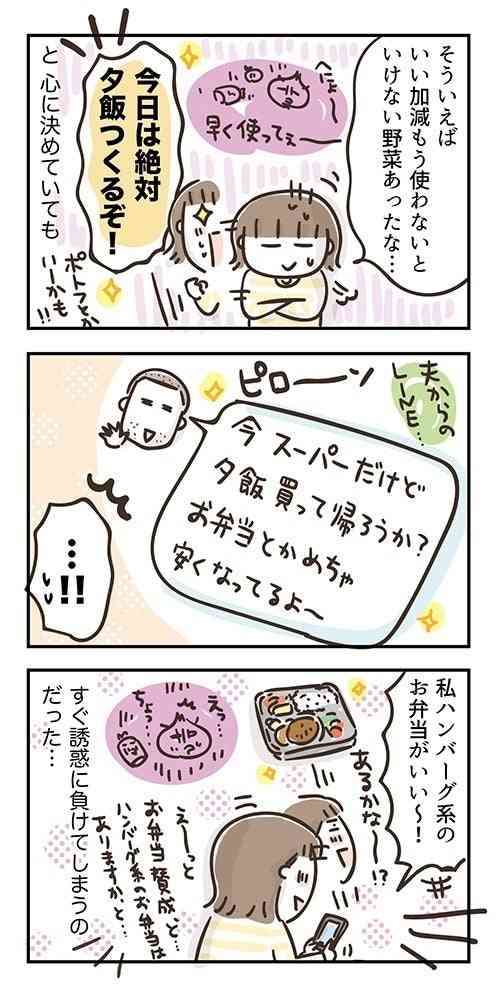 そういえば
いい加減もう使わないと
いけない野菜あったな…
へにょ〜
早く使ってぇ〜
今日は絶対
夕飯つくるぞ!
と心に決めていても
ポトフとか
いーかも!!
夫からの
LINE…
ピローーン
今スーパーだけど
夕飯買って帰ろうか?
お弁当とかめちゃ
安くなってるよ〜
…!!
私ハンバーグ系の
お弁当がいい〜!
あるかな〜!?
えっ…
ちょっ…
え〜っと
お弁当賛成、と…
ハンバーグ系のお弁当は
ありますか、と…
すぐ誘惑に負けてしまうの
だった…